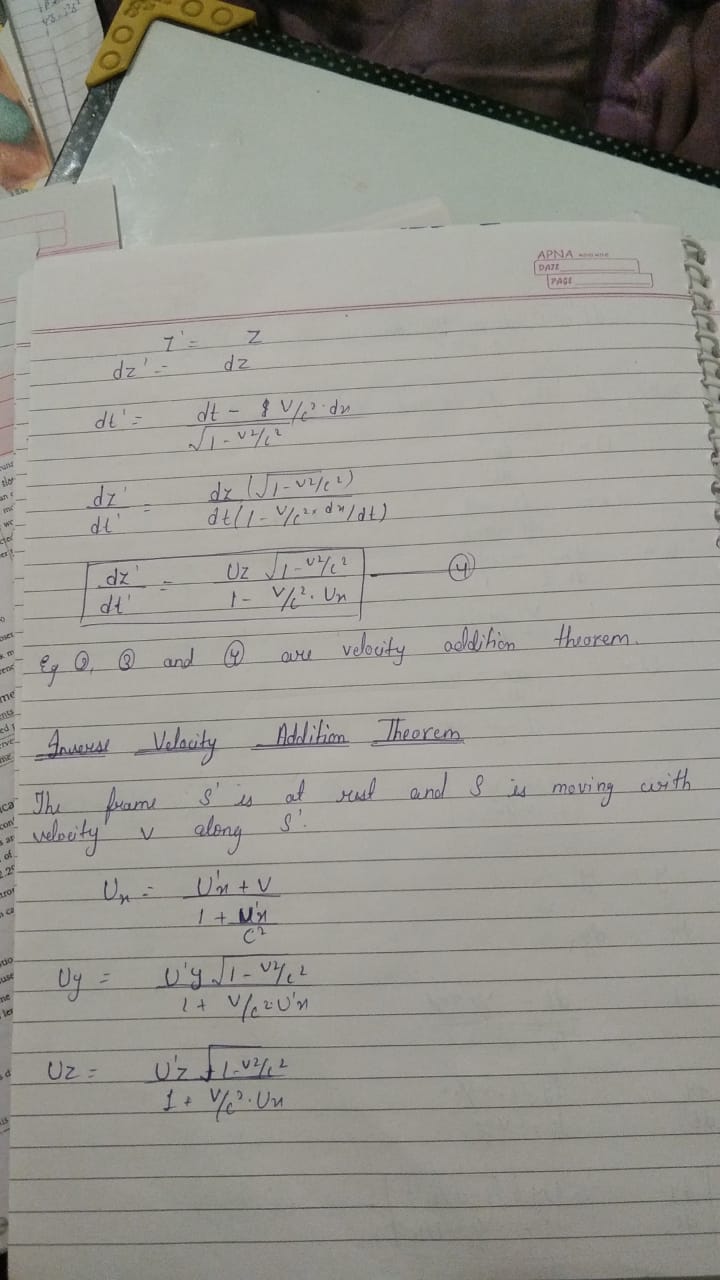 APNA
DATE
PAGE
z' = z
dz' = dz
dt' = dt - v/c². dx
√1-v²/c²
dz' = dz (√1-v²/c²)
dt' dt(1-v/c²× dx/dt)
dz' = Uz √1-v²/c² ④
dt' 1- v/c². Ux
Eq ②, ③ and ④ are velocity addition theorem.
Inverse Velocity Addition Theorem
The frame S' is at rest and S is moving with
velocity v along S'.
Ux = U'x + v
1 + U'x
c²
Uy = U'y √1-v²/c²
1+ v/c² U'x
Uz = U'z √1-v²/c²
1 + v/c². Ux